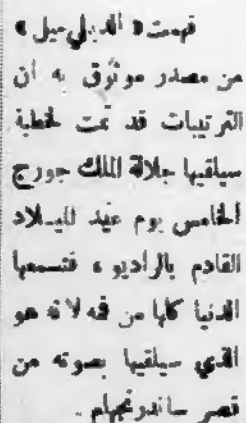 فهمت « الديلي ميل »
من مصدر موثوق به ان
الترتيبات قد تمت لخطبة
سيلقيها جلالة الملك جورج
الخامس يوم عيد الميلاد
القادم بالراديو ، فتسمعها
الدنيا كلها من فمه لانه هو
الذي سيلقيها بصوته من
قصر ساندرنجهام .